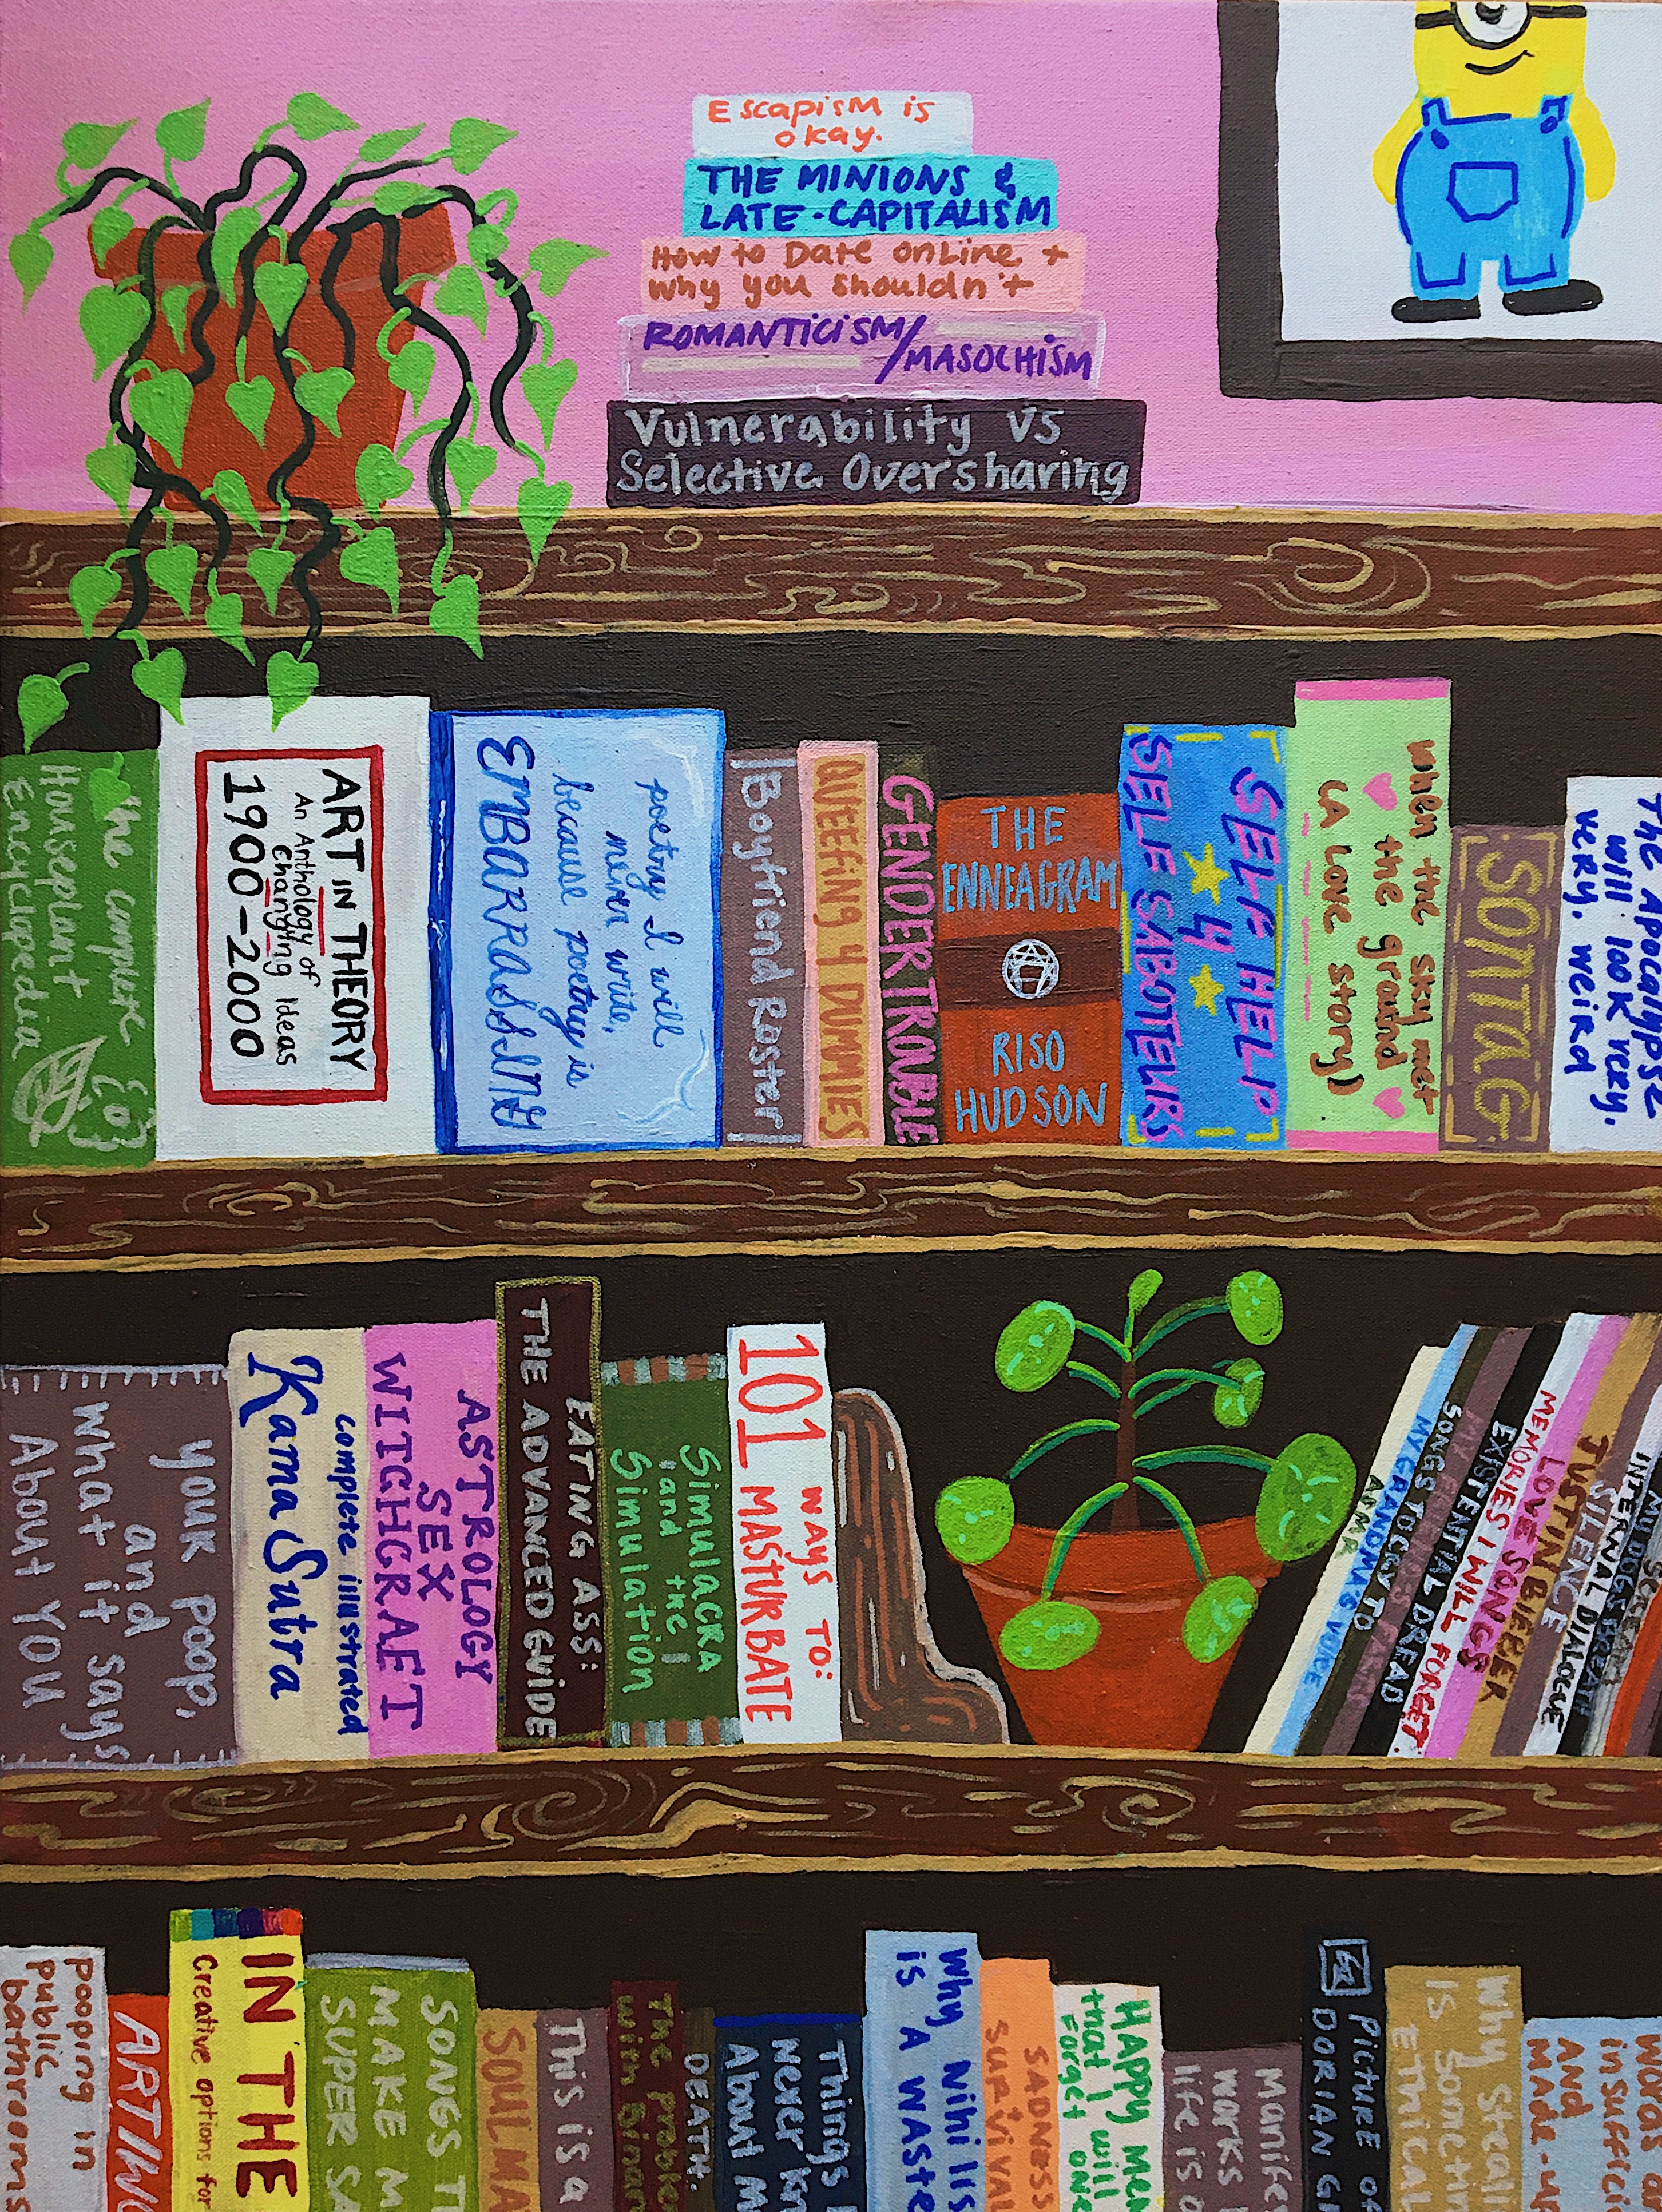 Escapism is
okay.
THE MINIONS &
LATE-CAPITALISM
How to Date online +
why you shouldn't
ROMANTICISM/
MASOCHISM
Vulnerability VS
Selective Oversharing
the complete
Houseplant
Encyclopedia
ART IN THEORY
An Anthology of
Changing Ideas
1900-2000
poetry I will
never write,
because poetry is
EMBARRASSING
Boyfriend Roster
QUEEFING 4 DUMMIES
GENDER TROUBLE
THE
ENNEAGRAM
RISO
HUDSON
SELF HELP
4
SELF SABOTEURS
when the sky met
the ground
(A LOVE STORY)
SONTAG
The Apocalypse
will look very,
very, weird
your poop,
and
what it says
About YOU
complete illustrated
Kama Sutra
ASTROLOGY
SEX
WITCHGRAFT
EATING ASS:
THE ADVANCED GUIDE
Simulacra
and the
Simulation
101 WAYS TO:
MASTURBATE
ASMR
MY GRANDMA'S VOICE
SONGS TO CRY TO
EXISTENTIAL DREAD
MEMORIES I WILL FORGET
LOVE SONGS
JUSTIN BIEBER
SILENCE
INTERNAL DIALOGUE
MY DOGS BREATH
pooping in
public
bathrooms
ARTIW
IN THE
Creative options for
SONGS T
MAKE M
SUPER SA
SOULMA
This is a
The proble
with binar
DEATH.
Things I
Never Kn
About M
Why Nihilis
is A WASTE
SADNESS
Survival
HAPPY MEM
that I will
FORGET ONE
Manifes
works
life is o
PICTURE OF
DORIAN G
Why Steali
is Sometim
ETHICAL
Words a
insuffici
AND
MADE-UP